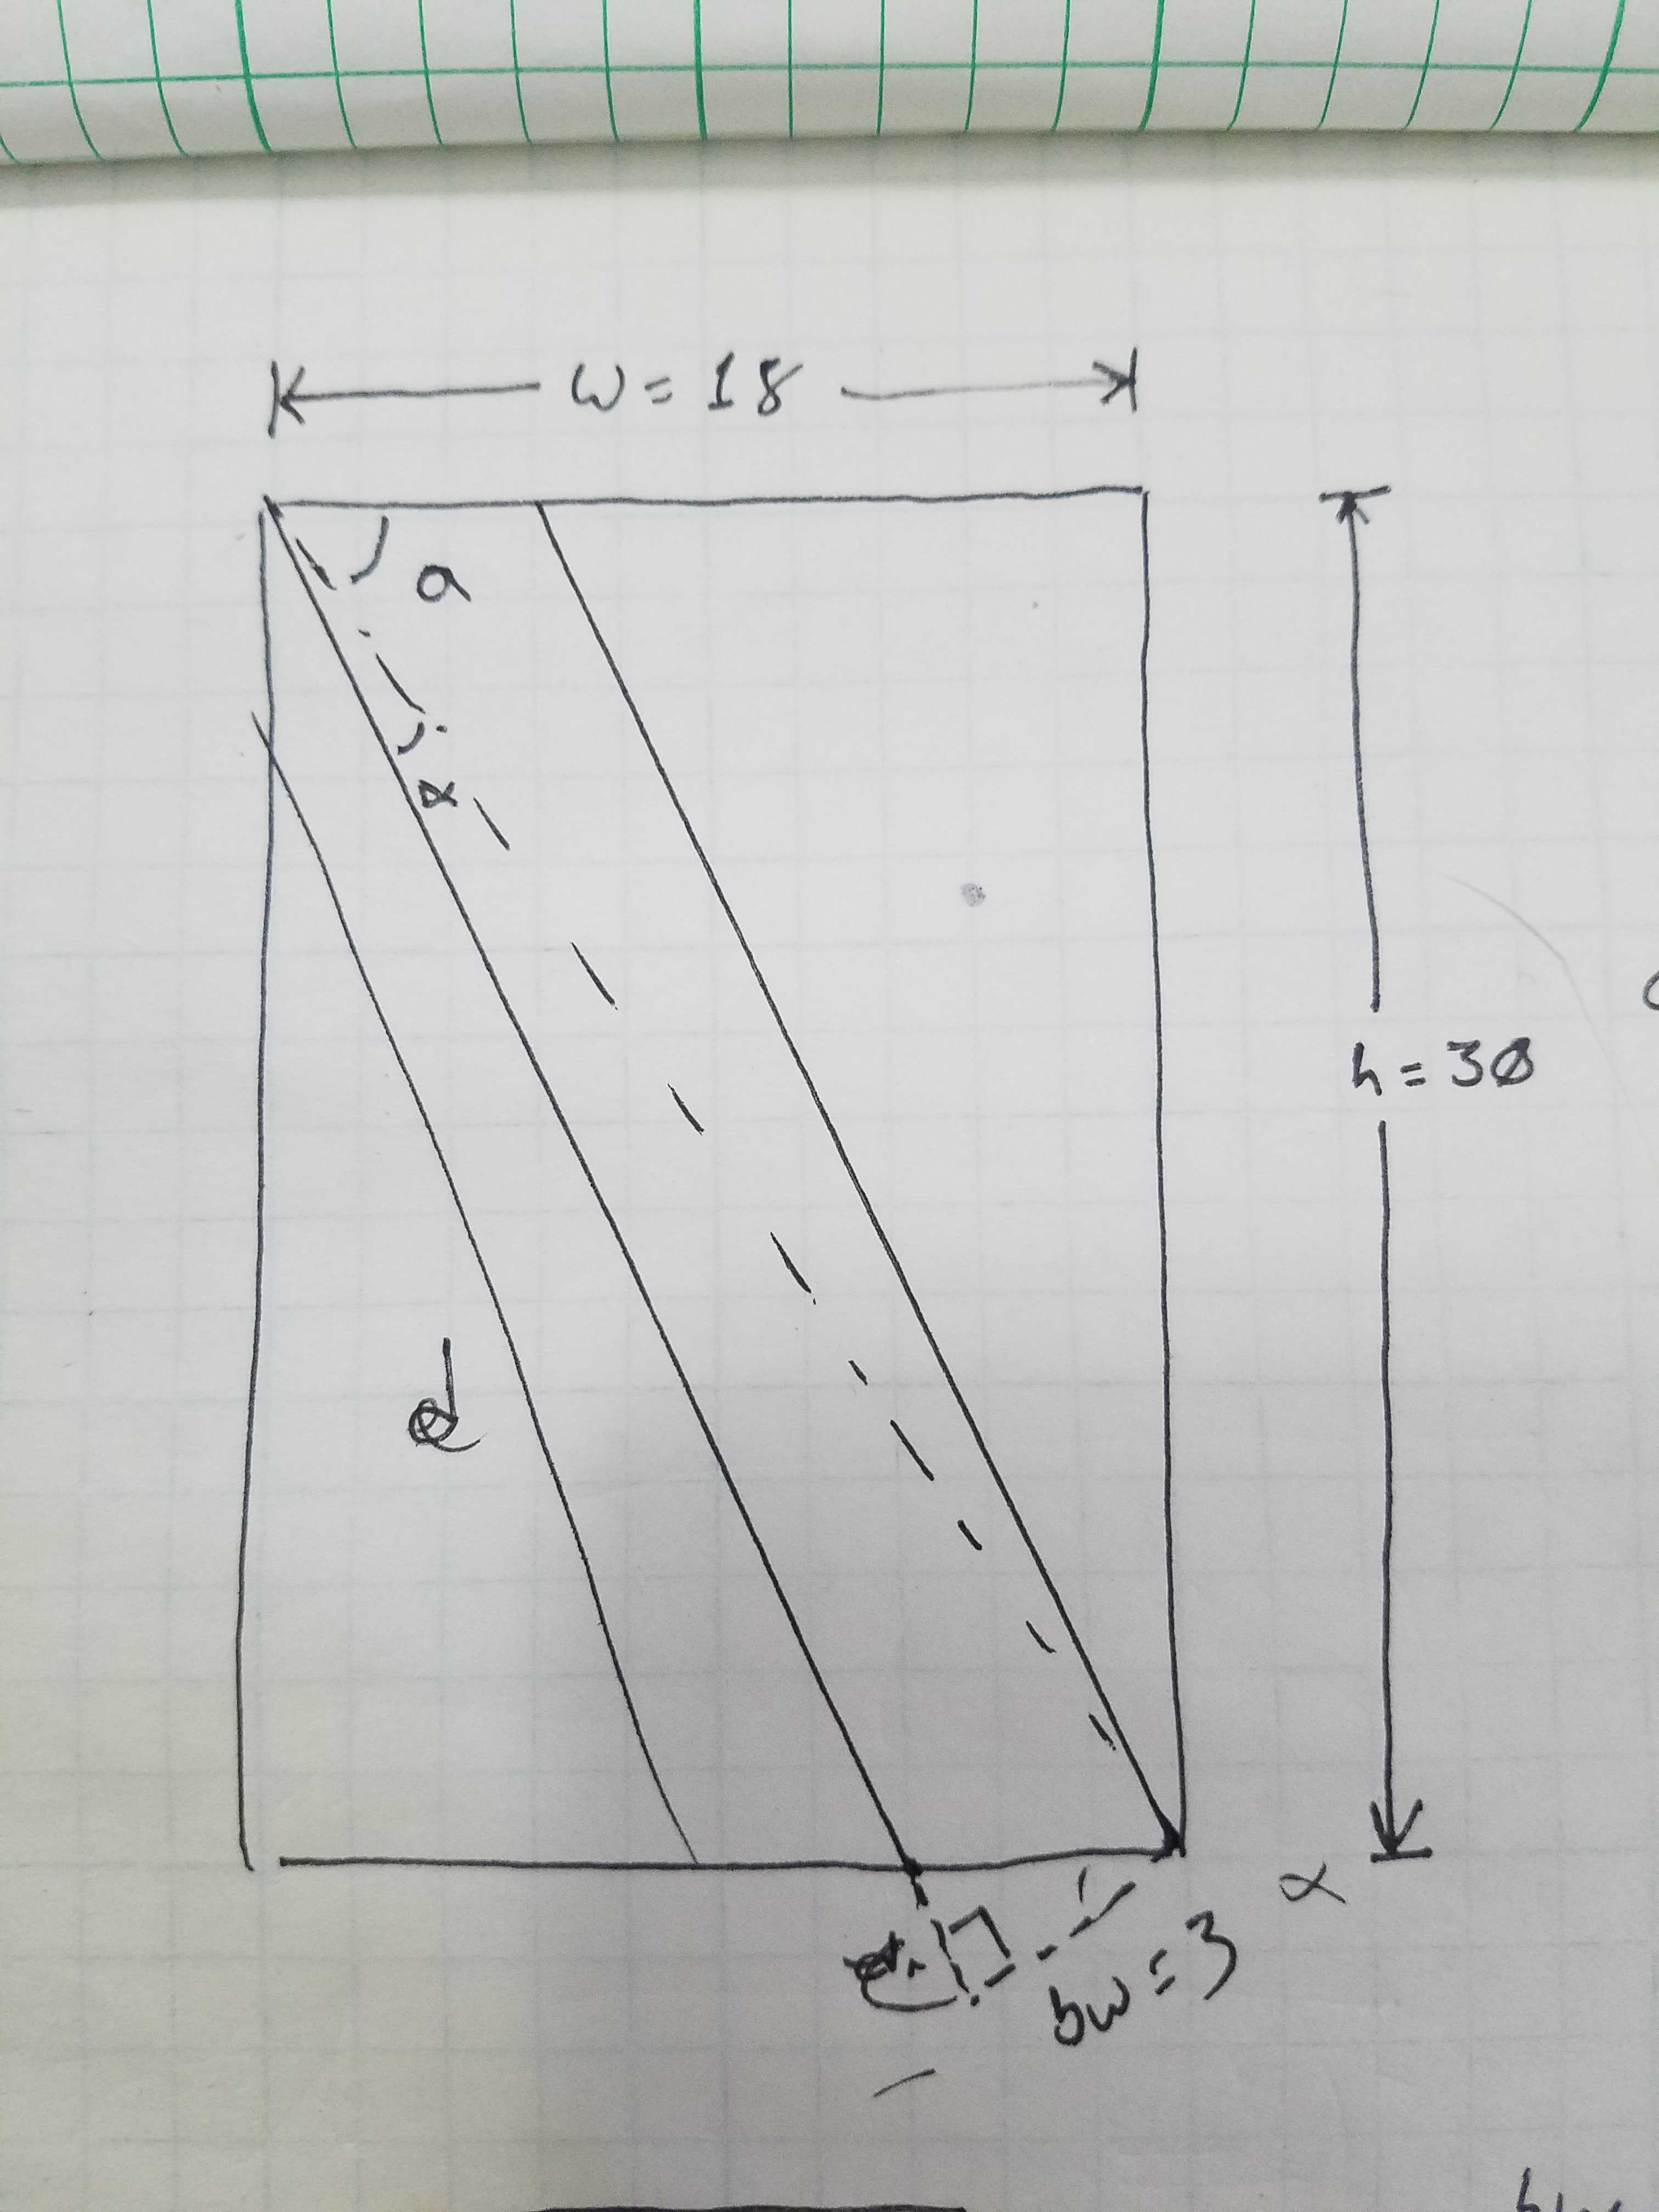 w = 18
a
α
h = 30
d
α
bw = 3
bw